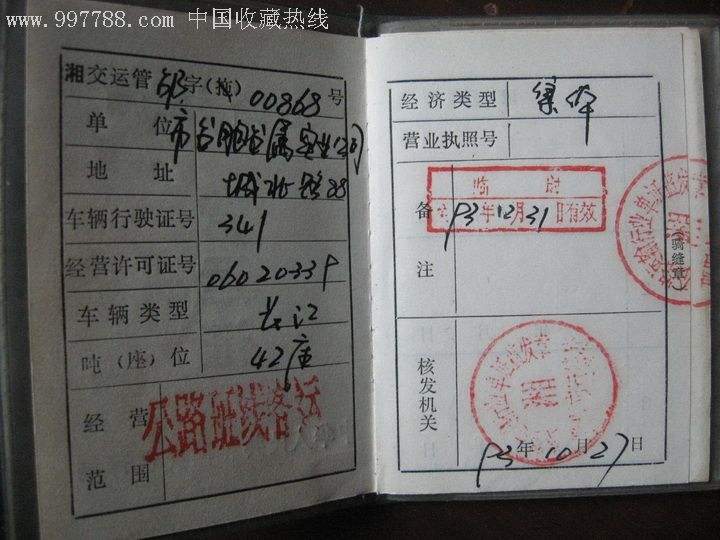 www.997788.com 中国收藏热线
湘交运管 邵字(拖) 00868 号
单 位
地 址 城北路88
车辆行驶证号 341
经营许可证号 06020339
车辆类型 长江
吨(座)位 42座
经营范围 公路班线客运
经济类型 集体
营业执照号
备注
临 时
93年12月31日有效
(骑缝章)
核发机关
湘
93年10月27日